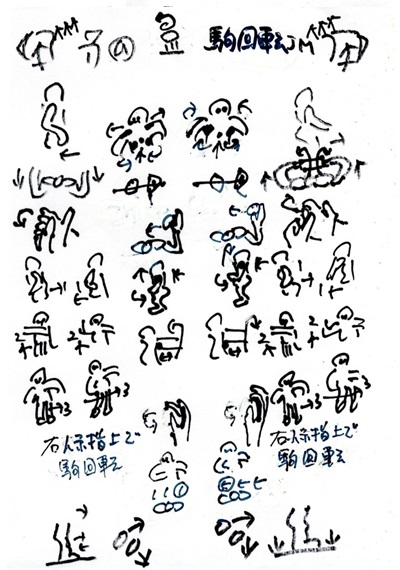 駒回転JM
右人示指上で
駒回転
右人示指上で
駒回転